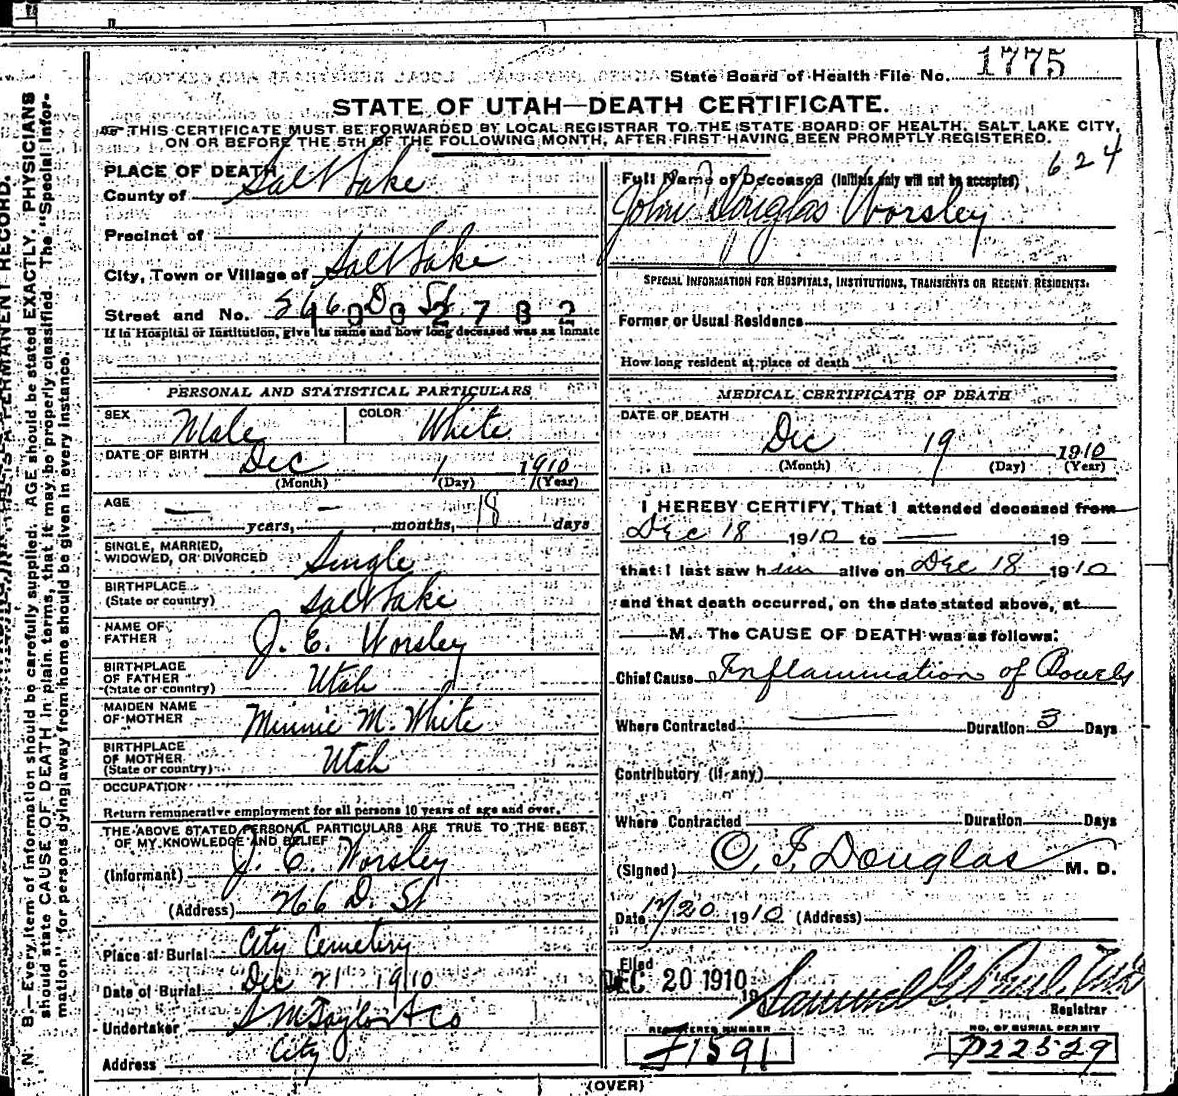 State Board of Health File No. 1775
STATE OF UTAH—DEATH CERTIFICATE.
THIS CERTIFICATE MUST BE FORWARDED BY LOCAL REGISTRAR TO THE STATE BOARD OF HEALTH, SALT LAKE CITY,
ON OR BEFORE THE 5TH OF THE FOLLOWING MONTH, AFTER FIRST HAVING BEEN PROMPTLY REGISTERED.
624
PLACE OF DEATH
County of Salt Lake
Precinct of
City, Town or Village of Salt Lake
Street and No. D. St
If in Hospital or Institution, give its name and how long deceased was an inmate
PERSONAL AND STATISTICAL PARTICULARS
SEX Male COLOR White
DATE OF BIRTH Dec 1 1910
(Month) (Day) (Year)
AGE — years, — months, 18 days
SINGLE, MARRIED,
WIDOWED, OR DIVORCED Single
BIRTHPLACE
(State or country) Salt Lake
NAME OF
FATHER J. E. Worsley
BIRTHPLACE
OF FATHER
(State or country) Utah
MAIDEN NAME
OF MOTHER Minnie M. White
BIRTHPLACE
OF MOTHER
(State or country) Utah
OCCUPATION
Return remunerative employment for all persons 10 years of age and over.
THE ABOVE STATED PERSONAL PARTICULARS ARE TRUE TO THE BEST
OF MY KNOWLEDGE AND BELIEF
(Informant) J. E. Worsley
(Address) 766 D. St
Place of Burial City Cemetery
Date of Burial Dec 21 1910
Undertaker S M Taylor & Co
Address City
Full Name of Deceased (Initials only will not be accepted)
John Douglas Worsley
SPECIAL INFORMATION FOR HOSPITALS, INSTITUTIONS, TRANSIENTS OR RECENT RESIDENTS.
Former or Usual Residence
How long resident at place of death
MEDICAL CERTIFICATE OF DEATH
DATE OF DEATH
Dec 19 1910
(Month) (Day) (Year)
I HEREBY CERTIFY, That I attended deceased from
Dec 18 1910 to — 19
that I last saw him alive on Dec 18 1910
and that death occurred, on the date stated above, at
M. The CAUSE OF DEATH was as follows:
Chief Cause Inflammation of Bowels
Where Contracted — Duration 3 Days
Contributory (if any)
Where Contracted Duration Days
(Signed) O. F. Douglas M. D.
Date 12/20 1910 (Address)
Filed
DEC 20 1910 19 Samuel G Paul
Registrar
REGISTERED NUMBER NO. OF BURIAL PERMIT
1591 22529
(OVER)
N. B.—Every item of information should be carefully supplied. AGE should be stated EXACTLY. PHYSICIANS
should state CAUSE OF DEATH in plain terms, that it may be properly classified. The "Special Infor-
mation" for persons dying away from home should be given in every instance.
PERMANENT RECORD.